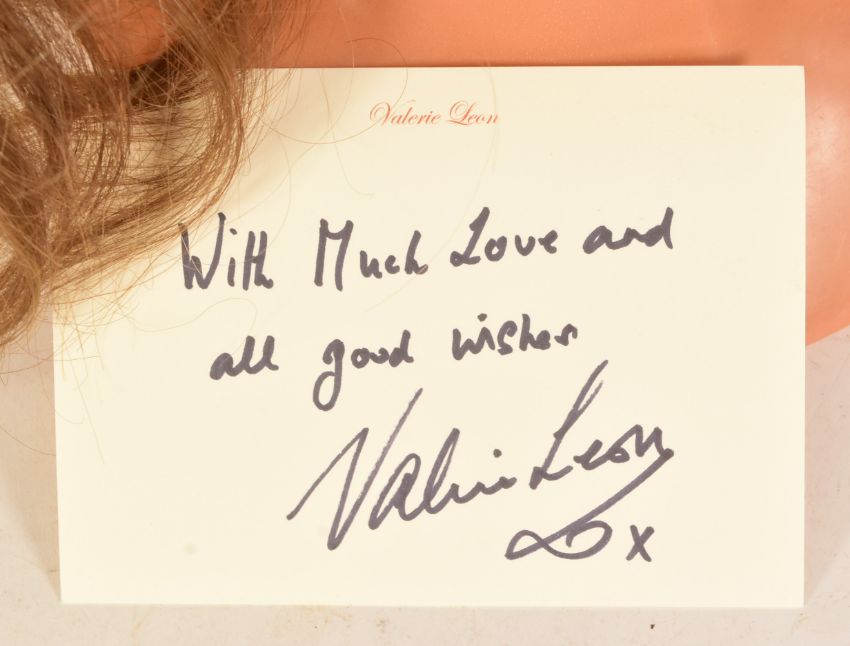 Valerie Leon
With Much Love and
all good wishes
Valerie Leon
x